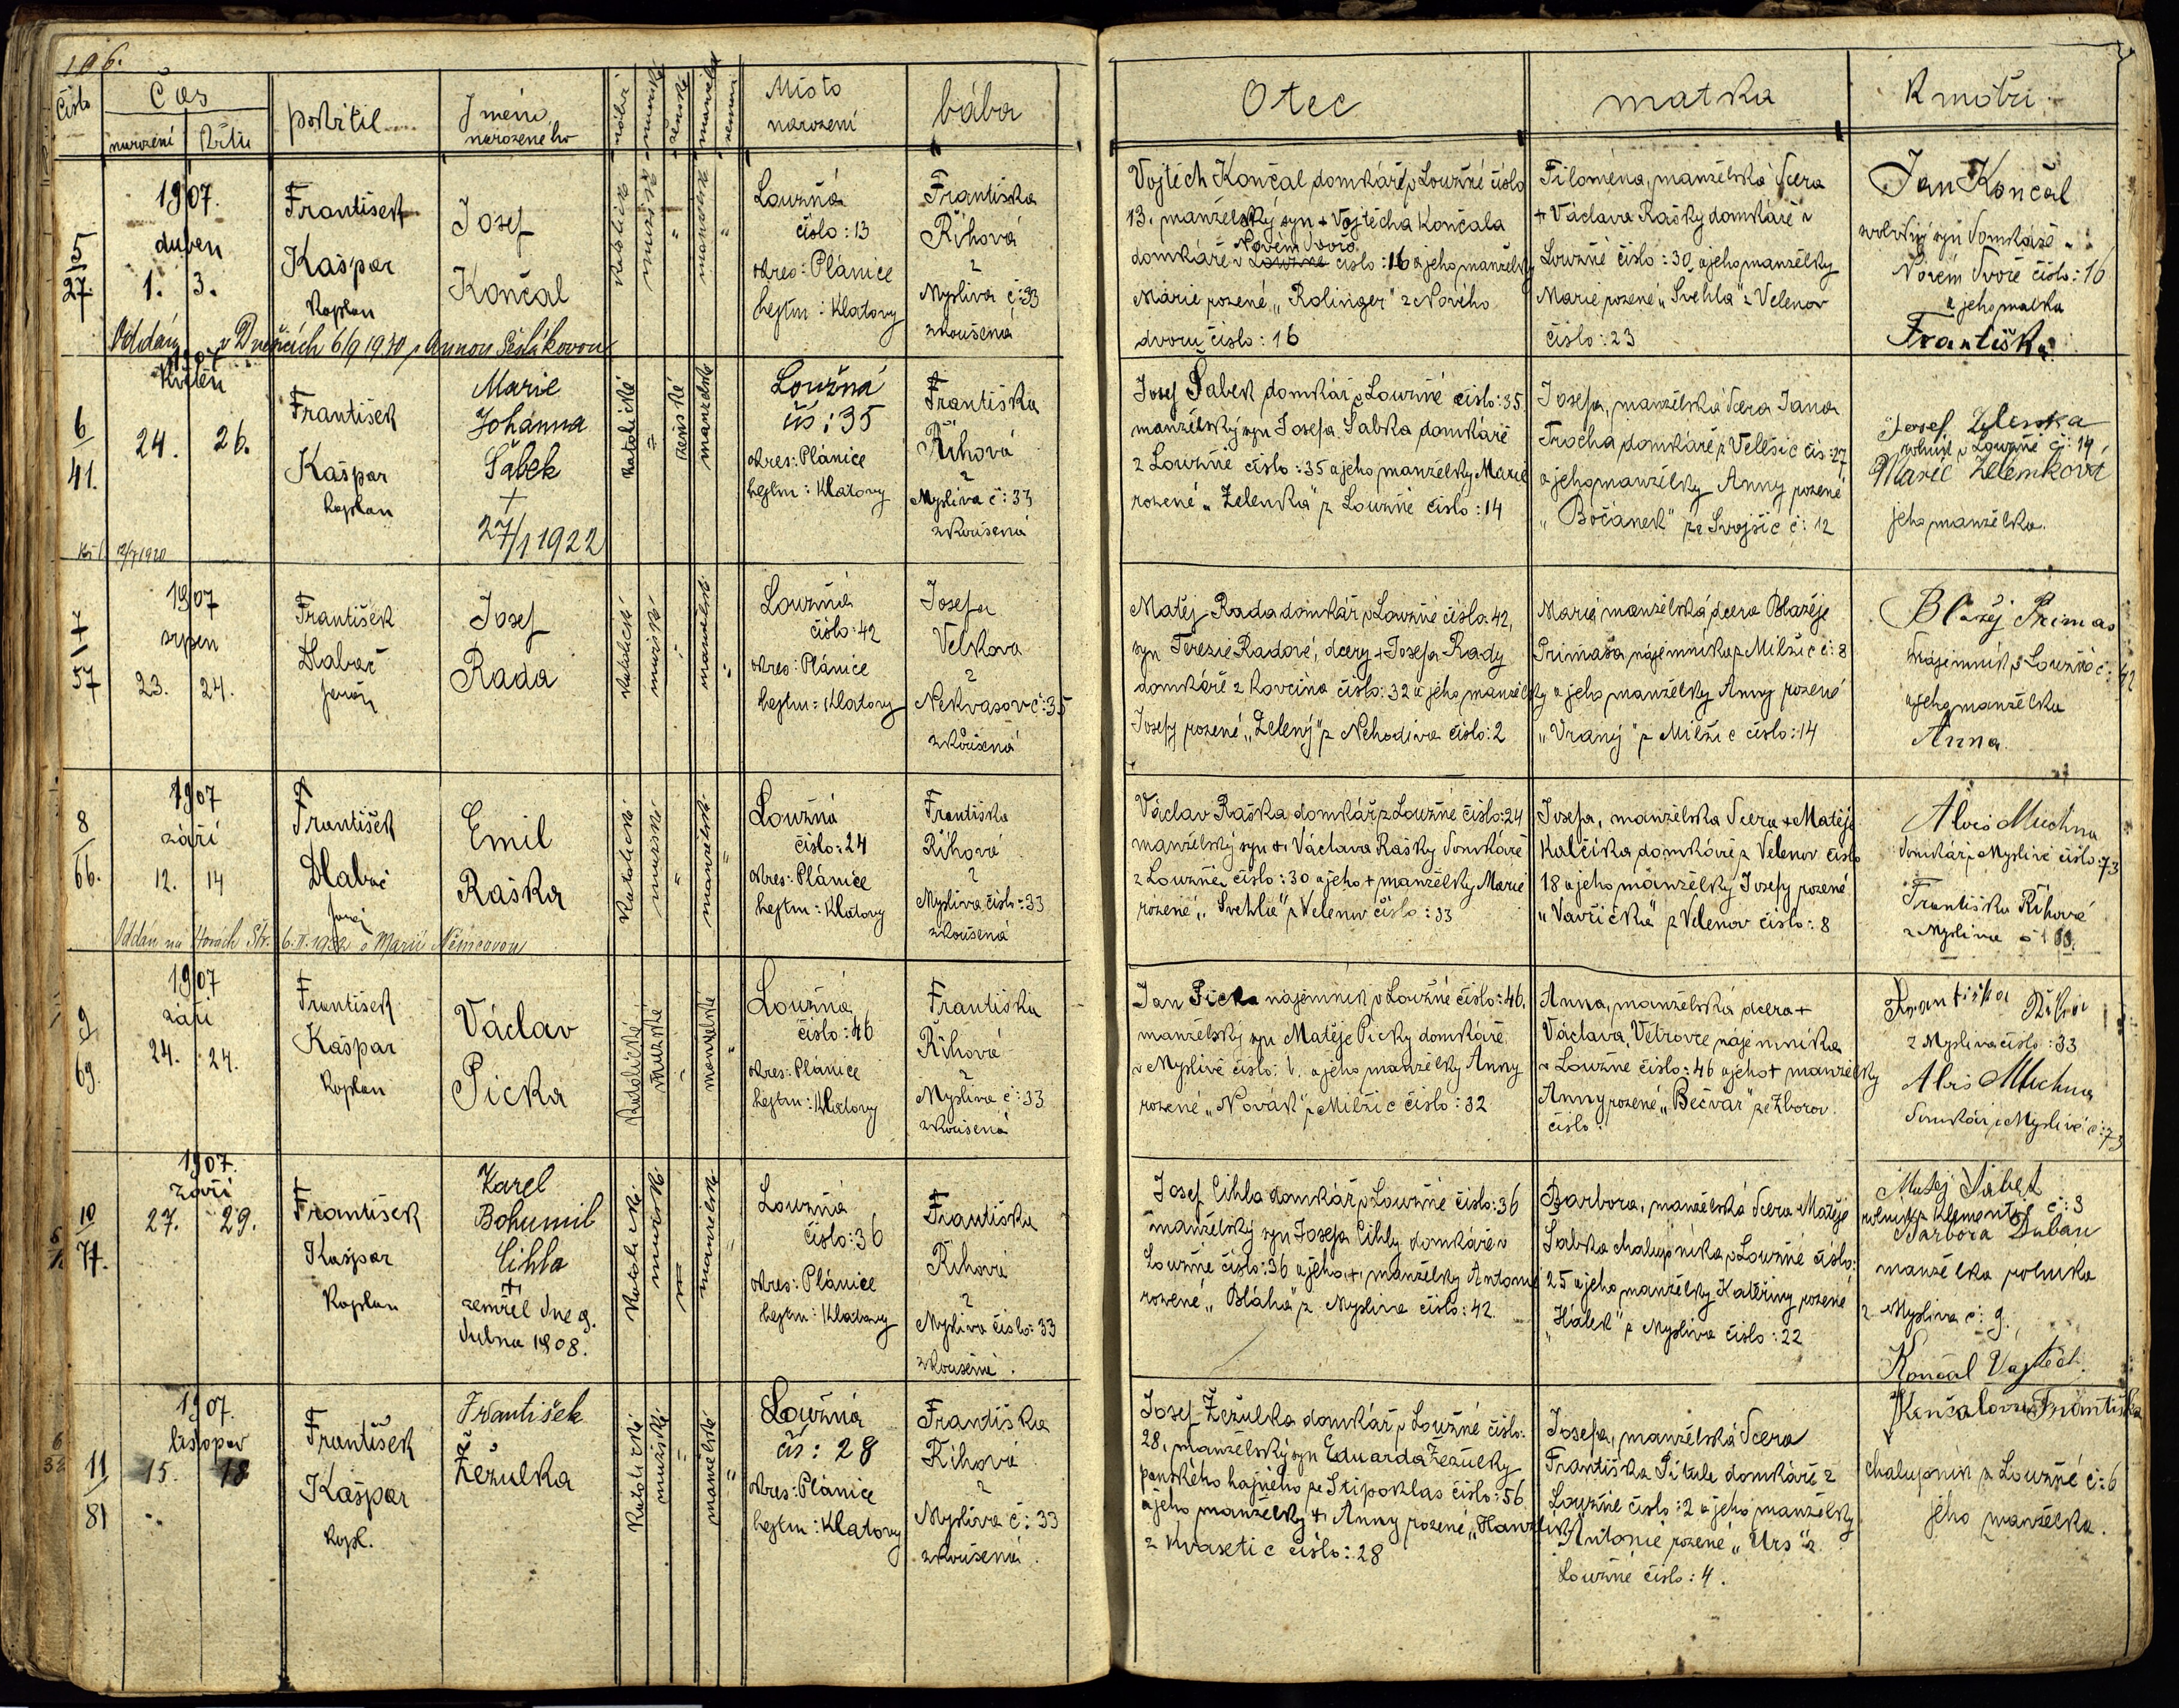 106.
Číslo
Čas
narození
křtu
pokřtil
Jméno
narozeného
mužské
ženské
Místo
narození
bába
Otec
matka
Kmotři
5
27.
1907.
duben
1. 3.
František
Kašpar
Kaplan
Josef
Končal
katolické
mužské
manželské
Loužná
číslo: 13
okres: Plánice
hejtm: Klatovy
Františka
Říhová
z
Mysliva č: 33
zkoušená
Vojtěch Končal domkář v Loužné číslo
13, manželský syn + Vojtěcha Končala
Novém Dvoře
domkáře v Loužné číslo: 16 a jeho manželky
Marie rozené „Rolinger" z Nového
dvoru číslo: 16
Filoména, manželská dcera
+ Václava Rašky domkáře v
Loužné číslo: 30 a jeho manželky
Marie rozené „Švehla" z Velenov
číslo: 23
Jan Končal
syn domkáře v
Novém Dvoře číslo: 16
a jeho matka
Františka
Oddán v 6/9 1930 s Annou
6
41.
1907
Květen
24. 26.
František
Kašpar
kaplan
Marie
Johanna
Šabek
+
27/1 1922
katolické
ženské
manželské
Loužná
čís: 35
okres: Plánice
hejtm: Klatovy
Františka
Říhová
z
Mysliva č: 33
zkoušená
Josef Šabek domkář v Loužné číslo: 35
manželský syn Josefa Šabka domkáře
z Loužné číslo: 35 a jeho manželky Marie
rozené „Zelenka" z Loužné číslo: 14
Josefa, manželská dcera Jana
Trocha domkáře z Velešic čís: 27
a jeho manželky Anny rozené
„Bočánek" ze Svojšic č: 12
Josef Zelenka
rolník v Loužné č: 14
Marie Zelenková
jeho manželka.
12/7 1920
7
57
1907
srpen
23. 24.
František
Dlabač
farář
Josef
Rada
katolické
mužské
manželské
Loužná
číslo: 42
okres: Plánice
hejtm: Klatovy
Josefa
Velkova
z
Nekvasov č: 35
zkoušená
Matěj Rada domkář v Loužné číslo: 42,
syn Terezie Radové, dcery + Josefa Rady
domkáře z Kovčína číslo: 32 a jeho manželky
Josefy rozené „Zelený" z Nehodiva číslo: 2
Marie manželská dcera Blažeje
Primasa nájemníka z Milžic č: 8
a jeho manželky Anny rozené
„Vraný" z Milžic číslo: 14
Blažej Primas
nájemník v Loužné č: 42
a jeho manželka
Anna.
8
66.
1907
září
12. 14
František
Dlabač
farář
Emil
Raška
katolické
mužské
manželské
Loužná
číslo: 24
okres: Plánice
hejtm: Klatovy
Františka
Říhová
z
Mysliva číslo: 33
zkoušená
Václav Raška domkář z Loužné číslo: 24
manželský syn + Václava Rašky domkáře
z Loužné číslo: 30 a jeho + manželky Marie
rozené „Švehla" z Velenov číslo: 33
Josefa, manželska dcera + Matěje
Kalčíka domkáře z Velenov číslo
18 a jeho manželky Josefy rozené
„Vavřička" z Velenov číslo: 8
Alois Muchna
domkář z Myslivé číslo: 73
Františka Říhová
z Mysliva
Oddán na Horách Str. 6. II. 1932 s Marií Němcovou
9
69
1907
září
24. 24.
František
Kašpar
kaplan
Václav
Picka
katolické
mužské
manželské
Loužná
číslo: 46
okres: Plánice
hejtm: Klatovy
Františka
Říhová
z
Mysliva č: 33
zkoušená
Jan Picka nájemník v Loužné číslo: 46,
manželský syn Matěje Picky domkáře
v Myslivé číslo: 1. a jeho manželky Anny
rozené „Novák" z Milžic číslo: 32
Anna, manželská dcera +
Václava Větrovce nájemníka
v Loužné číslo: 46 a jeho + manželky
Anny rozené „Bečvář" ze Zborov
číslo:
Františka
z Mysliva číslo: 33
Alois Muchna
domkář z Myslivé č: 73
10
77.
1907.
září
27. 29.
František
Kašpar
Kaplan
Karel
Bohumil
Cihla
+
zemřel dne 9.
dubna 1908.
katolické
mužské
manželské
Loužná
číslo: 36
okres: Plánice
hejtm: Klatovy
Františka
Říhová
z
Mysliva číslo: 33
zkoušená.
Josef Cihla domkář v Loužné číslo: 36
manželský syn Josefa Cihly domkáře v
Loužné číslo: 36 a jeho + manželky Antonie
rozené „Bláha" z Mysliva číslo: 42.
Barbora, manželská dcera Matěje
Šabka chalupníka v Loužné číslo:
25 a jeho manželky Kateřiny rozené
„Hálek" z Mysliva číslo: 22
Matěj Šabek
č: 3
Barbora Duban
manželka rolníka
z Mysliva č: 9.
11
81
1907.
listopad
15. 18
František
Kašpar
kapl.
František
Žežulka
katolické
mužské
manželské
Loužná
čís: 28
okres: Plánice
hejtm: Klatovy
Františka
Říhová
z
Mysliva č: 33
zkoušená.
Josef Žežulka domkář v Loužné číslo:
28, manželský syn Eduarda Žežulky
panského hajného ze Štipoklas číslo: 56.
a jeho manželky + Anny rozené „Hanzlík"
z Kvasetic číslo: 28
Josefa, manželská dcera
Františka Pítule domkáře z
Loužné číslo: 2 a jeho manželky
Antonie rozené „Urs" z
Loužné číslo: 4.
Končal Vojtěch
Končalova Františka
chalupník z Loužné č: 6
jeho manželka.